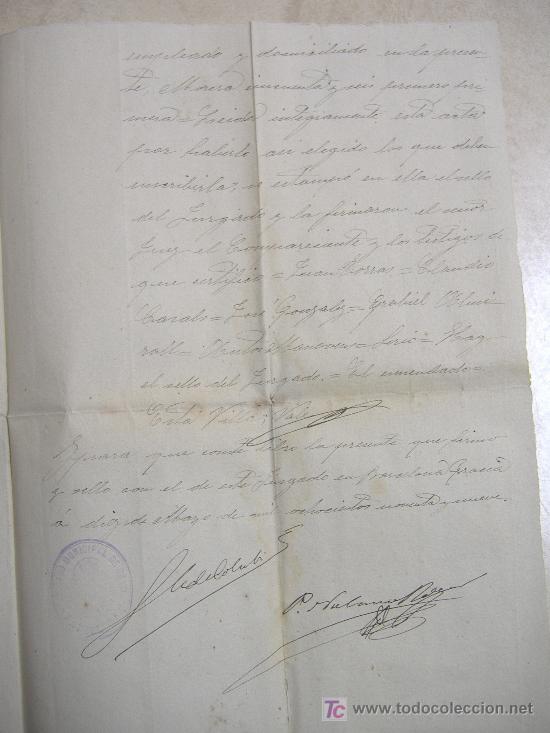 empleado y domiciliado en la presen-
te, Mayor cincuenta y seis primero pri-
mera = Leida integramente esta acta
por haberlo asi elegido los que deben
inscribirla, se estampó en ella el sello
del Juzgado y la firmaron el señor
Juez el Compareciente y los testigos de
que certifico = Juan Torras = Claudio
Casals = José Gonzalez =
= Hay
el sello del Juzgado. = El enmendado =
Esta Villa; Vale
Y para que conste libro la presente que firmo
y sello con el de este Juzgado en Barcelona Gracia
á diez de Mayo de mil ochocientos noventa y nueve.
MUNICIPAL DE
P.
TC TODOCOLECCION
www.todocoleccion.net